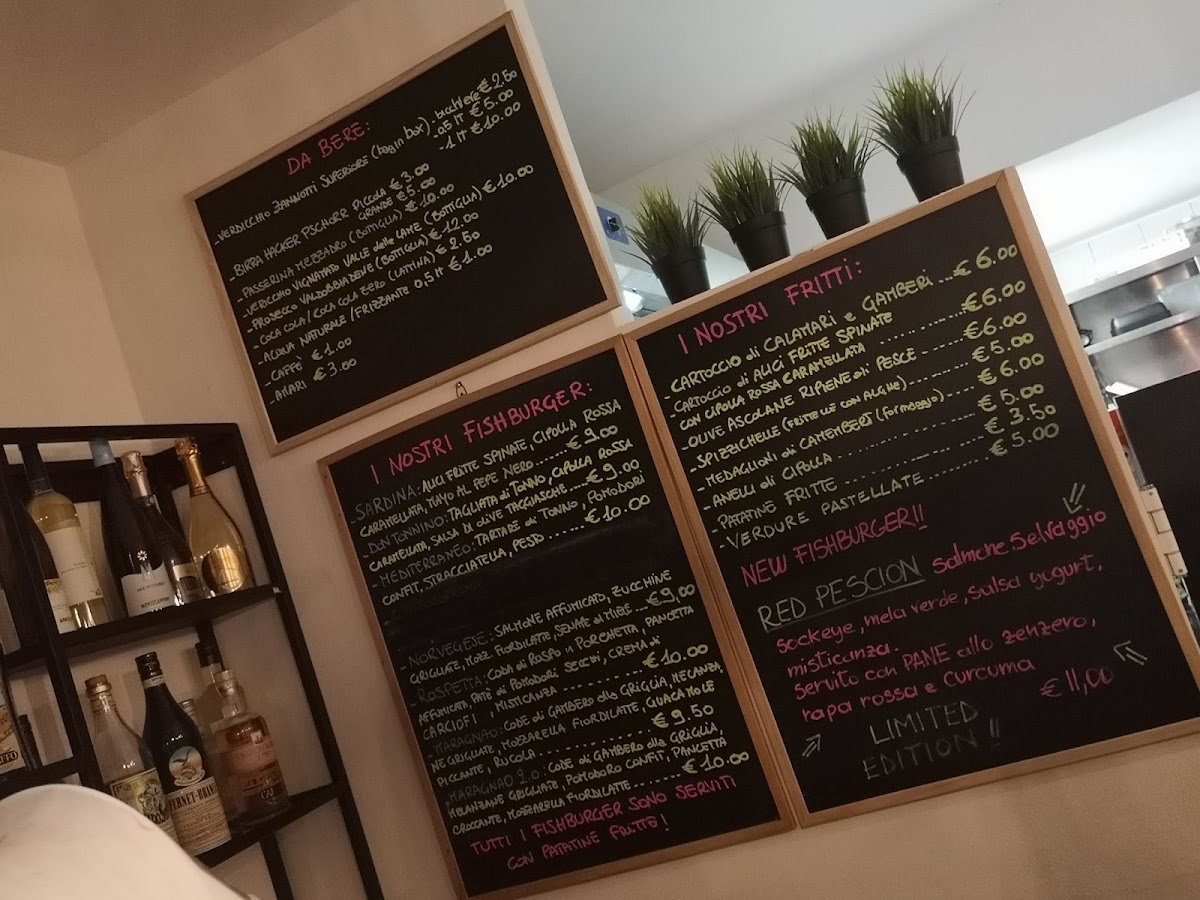 DA BERE:
-VERDICCHIO ZANNOTTI SUPERIORE (bag in box) - bicchiere € 2.50
-0.5 LT € 5.00
-1 LT € 10.00
-BIRRA HACKER PSCHORR PICCOLA € 3.00
GRANDE € 5.00
-PASSERINA MEZZADRO (BOTTIGLIA) € 10.00
-VERICCHIO VIGNAMATO VALLE delle LAME (BOTTIGLIA) € 10.00
-PROSECCO VALDOBBIADENE (BOTTIGLIA) € 12.00
-COCA COLA / COCA COLA ZERO (LATTINA) € 2.50
-ACQUA NATURALE / FRIZZANTE 0,5 LT € 1.00
-CAFFÈ € 1.00
-AMARI € 3.00
I NOSTRI FISHBURGER:
-SARDINA: ALICI FRITTE SPINATE, CIPOLLA ROSSA
CARAMELLATA, MAYO AL PEPE NERO ...... € 9.00
-DON TONNINO: TAGLIATA di TONNO, CIPOLLA ROSSA
CARAMELLATA, SALSA DI OLIVE TAGGIASCHE .... € 9.00
-MEDITERRANEO: TARTARE di TONNO, POMODORI
CONFIT, STRACCIATELLA, PESTO ...... € 10.00
-NORVEGESE: SALMONE AFFUMICATO, ZUCCHINE
GRIGLIATE, MOZZ. FIORDILATTE, SENAPE al MIELE ... € 9,00
-ROSPETTA: CODA di ROSPO in PORCHETTA, PANCETTA
AFFUMICATA, PATÈ di POMODORI SECCHI, CREMA di
CARCIOFI, MISTICANZA ............ € 10.00
-MARAGNAO: CODE di GAMBERO alla GRIGLIA, MELANZA,
NE GRIGLIATE, MOZZARELLA FIORDILATTE, GUACAMOLE
PICCANTE, RUCOLA ............ € 9.50
-MARAGNAO 2.0: CODE di GAMBERO alla GRIGLIA,
MELANZANE GRIGLIATE, POMODORO CONFIT, PANCETTA
CROCCANTE, MOZZARELLA FIORDILATTE ...... € 10.00
TUTTI I FISHBURGER SONO SERVITI
CON PATATINE FRITTE!
I NOSTRI FRITTI:
CARTOCCIO di CALAMARI e GAMBERI ... € 6.00
-CARTOCCIO di ALICI FRITTE SPINATE
CON CIPOLLA ROSSA CARAMELLATA ........ € 6.00
-OLIVE ASCOLANE RIPIENE di PESCE ...... € 6.00
-SPIZZICHELLE (FRITTELLE CON ALGHE) ...... € 5.00
-MEDAGLIONI di CAMEMBERT (formaggio) ... € 6.00
-ANELLI di CIPOLLA ............ € 5.00
PATATINE FRITTE ............ € 3.50
-VERDURE PASTELLATE ........ € 5.00
NEW FISHBURGER!!
RED PESCION Salmone Selvaggio
sockeye, mela verde, salsa yogurt,
misticanza.
servito con PANE allo zenzero,
rapa rossa e curcuma
€ 11,00
LIMITED
EDITION!!
FERNET-BRANCA